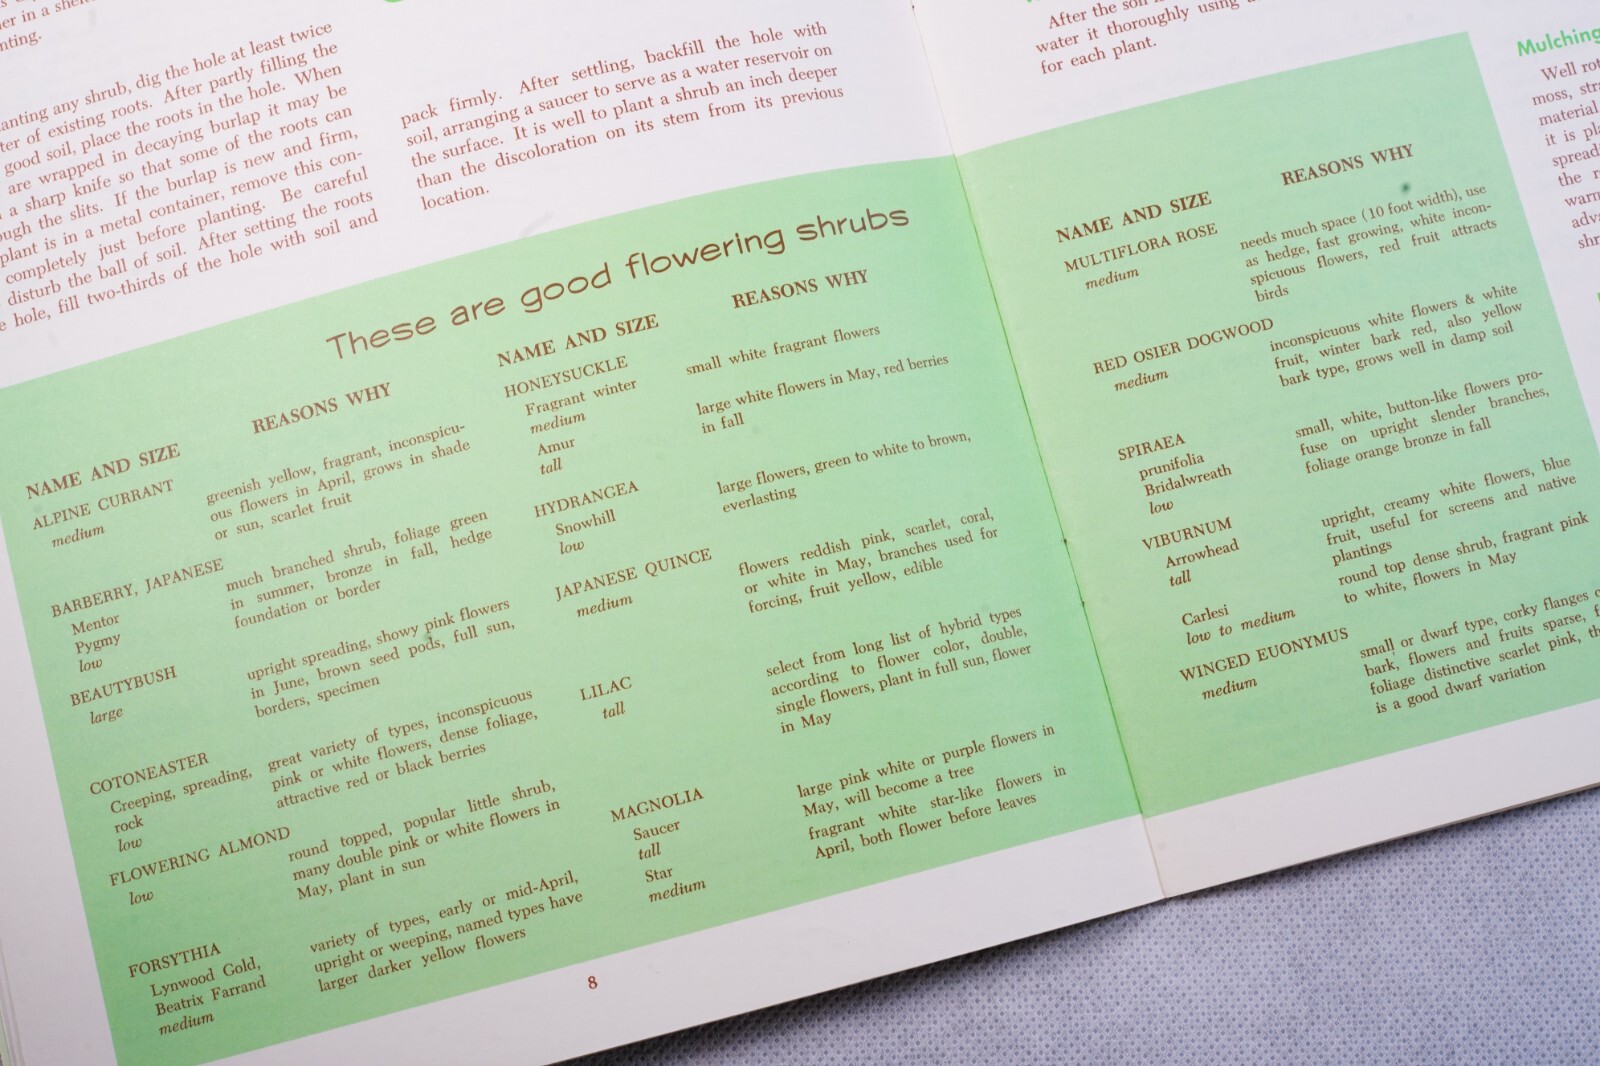 nting.
anting any shrub, dig the hole at least twice
ter of existing roots. After partly filling the
good soil, place the roots in the hole. When
are wrapped in decaying burlap it may be
a sharp knife so that some of the roots can
ough the slits. If the burlap is new and firm,
plant is in a metal container, remove this con-
completely just before planting. Be careful
disturb the ball of soil. After setting the roots
e hole, fill two-thirds of the hole with soil and
pack firmly. After settling, backfill the hole with
soil, arranging a saucer to serve as a water reservoir on
the surface. It is well to plant a shrub an inch deeper
than the discoloration on its stem from its previous
location.
These are good flowering shrubs
NAME AND SIZE
REASONS WHY
ALPINE CURRANT
medium
greenish yellow, fragrant, inconspicu-
ous flowers in April, grows in shade
or sun, scarlet fruit
BARBERRY, JAPANESE
Mentor
Pygmy
low
much branched shrub, foliage green
in summer, bronze in fall, hedge
foundation or border
BEAUTYBUSH
large
upright spreading, showy pink flowers
in June, brown seed pods, full sun,
borders, specimen
COTONEASTER
Creeping, spreading,
rock
low
great variety of types, inconspicuous
pink or white flowers, dense foliage,
attractive red or black berries
FLOWERING ALMOND
low
round topped, popular little shrub,
many double pink or white flowers in
May, plant in sun
FORSYTHIA
Lynwood Gold,
Beatrix Farrand
medium
variety of types, early or mid-April,
upright or weeping, named types have
larger darker yellow flowers
NAME AND SIZE
REASONS WHY
HONEYSUCKLE
Fragrant winter
medium
small white fragrant flowers
Amur
tall
large white flowers in May, red berries
in fall
HYDRANGEA
Snowhill
low
large flowers, green to white to brown,
everlasting
JAPANESE QUINCE
medium
flowers reddish pink, scarlet, coral,
or white in May, branches used for
forcing, fruit yellow, edible
LILAC
tall
select from long list of hybrid types
according to flower color, double,
single flowers, plant in full sun, flower
in May
MAGNOLIA
Saucer
tall
large pink white or purple flowers in
May, will become a tree
Star
medium
fragrant white star-like flowers in
April, both flower before leaves
8
After the soil
water it thoroughly using
for each plant.
NAME AND SIZE
REASONS WHY
MULTIFLORA ROSE
medium
needs much space (10 foot width), use
as hedge, fast growing, white incon-
spicuous flowers, red fruit attracts
birds
RED OSIER DOGWOOD
medium
inconspicuous white flowers & white
fruit, winter bark red, also yellow
bark type, grows well in damp soil
SPIRAEA
prunifolia
Bridalwreath
low
small, white, button-like flowers pro-
fuse on upright slender branches,
foliage orange bronze in fall
VIBURNUM
Arrowhead
tall
upright, creamy white flowers, blue
fruit, useful for screens and native
plantings
Carlesi
low to medium
round top dense shrub, fragrant pink
to white, flowers in May
WINGED EUONYMUS
medium
small or dwarf type, corky flanges
bark, flowers and fruits sparse,
foliage distinctive scarlet pink,
is a good dwarf variation
Mulching
Well rot
moss, stra
material
it is pla
spreadi
the r
warm
adva
shr